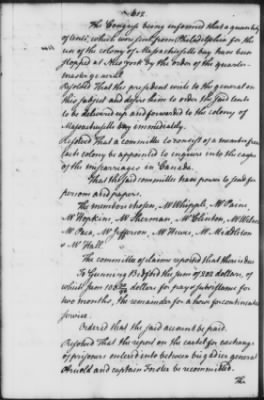 The Congress being informed that a quantity
of tents, which were sent from Philadelphia for the
use of the colony of Massachusetts bay have been
stopped at New york by the order of the quarter
master general
Resolved That the president write to the general on
this subject and desire him to order the said tents
to be delivered up and forwarded to the colony of
Massachusetts bay immediately.
Resolved That a committee to consist of a member from
each colony be appointed to enquire into the cause
of the miscarriages in Canada.
That the said committee have power to send for
persons and papers.
The members chosen, Mr Whipple, Mr Paine,
Mr Hopkins, Mr Sherman, Mr Clinton, Mr Wilson
Mr Paca, Mr Jefferson, Mr Hewes, Mr Middleton
& Mr Hall.
The committee of claims reported that there is due
To Gunning Bedford the sum of 202 dollars, of
which sum 108 dollars for pay & subsistance for
two months, the remainder for a horse for continental
service.
Ordered that the said account be paid.
Resolved That the report on the cartel for exchange
of prisoners entered into between brigadier general
Arnold and captain Forster be recommitted.
The